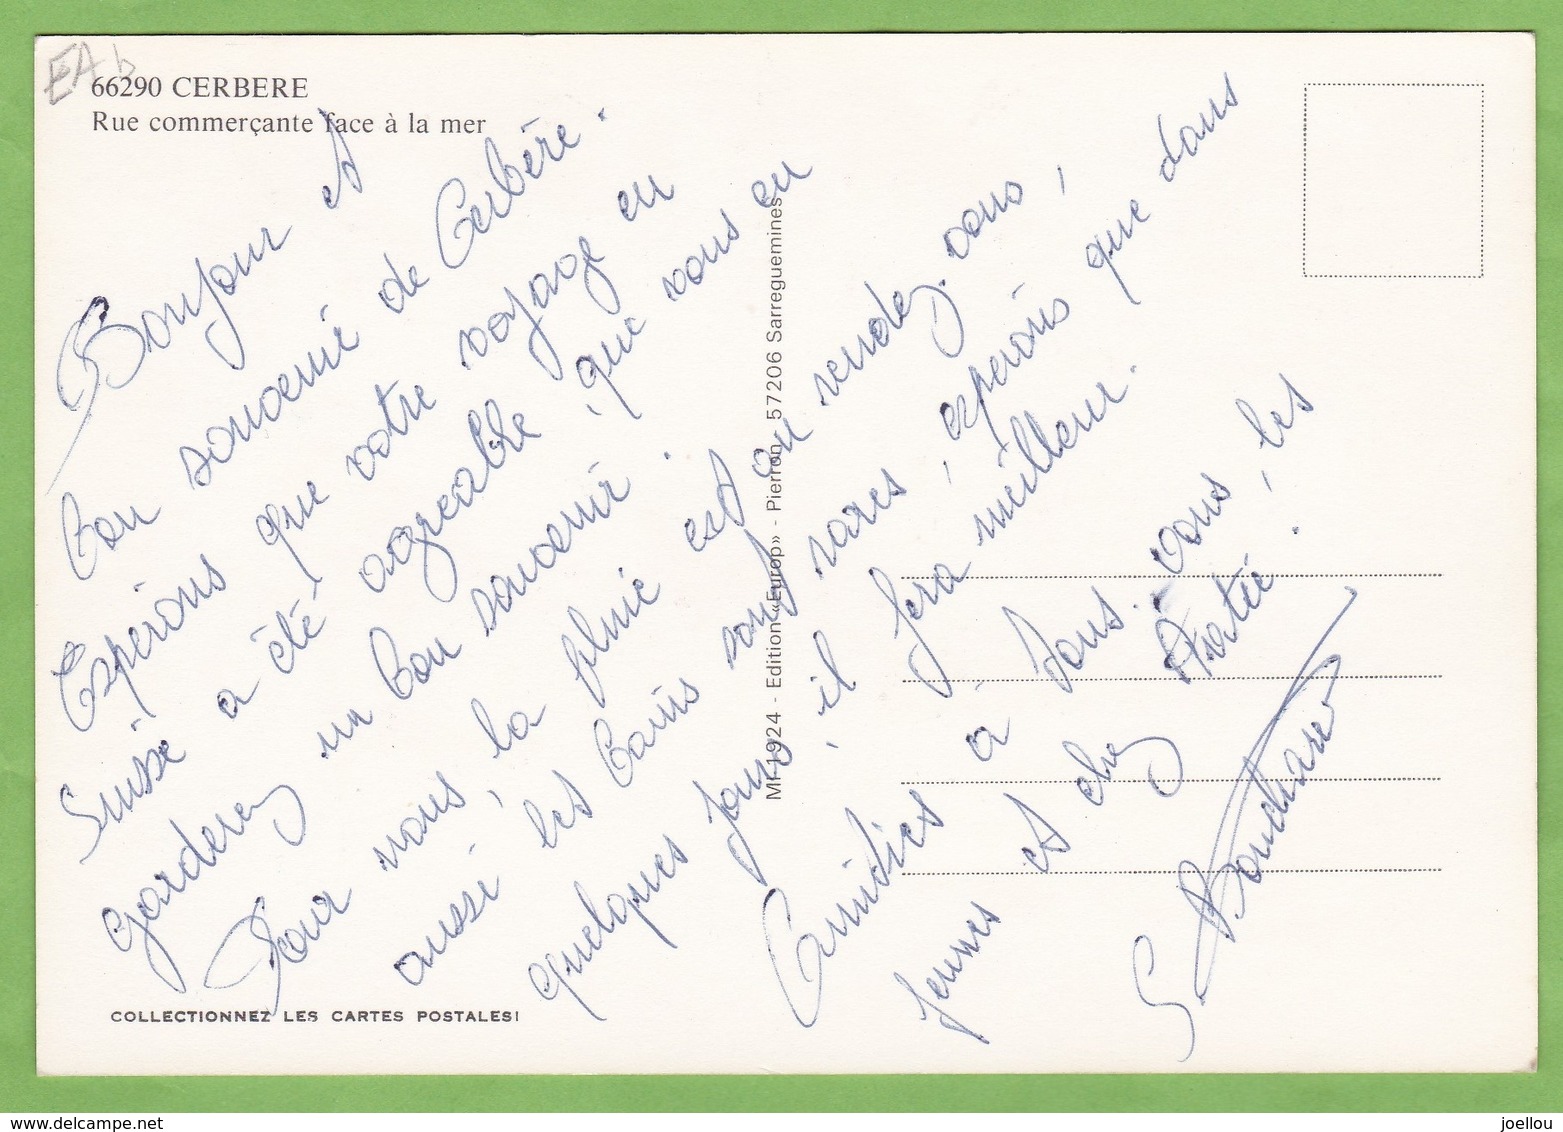 66290 CERBERE
Rue commerçante face à la mer
Bonjour et
bon souvenir de Cerbère.
Espérons que votre voyage en
Suisse a été agréable, que vous en
garderez un bon souvenir.
Pour nous, la pluie est au rendez-vous,
aussi les bains sont rares, espérons que dans
quelques jours, il fera meilleur.
Amitiés à tous. vous, les
jeunes et chez
G Bouchard
MI 1924 - Edition «Europ» - Pierron - 57206 Sarreguemines
COLLECTIONNEZ LES CARTES POSTALES!
delcampe.net
joellou